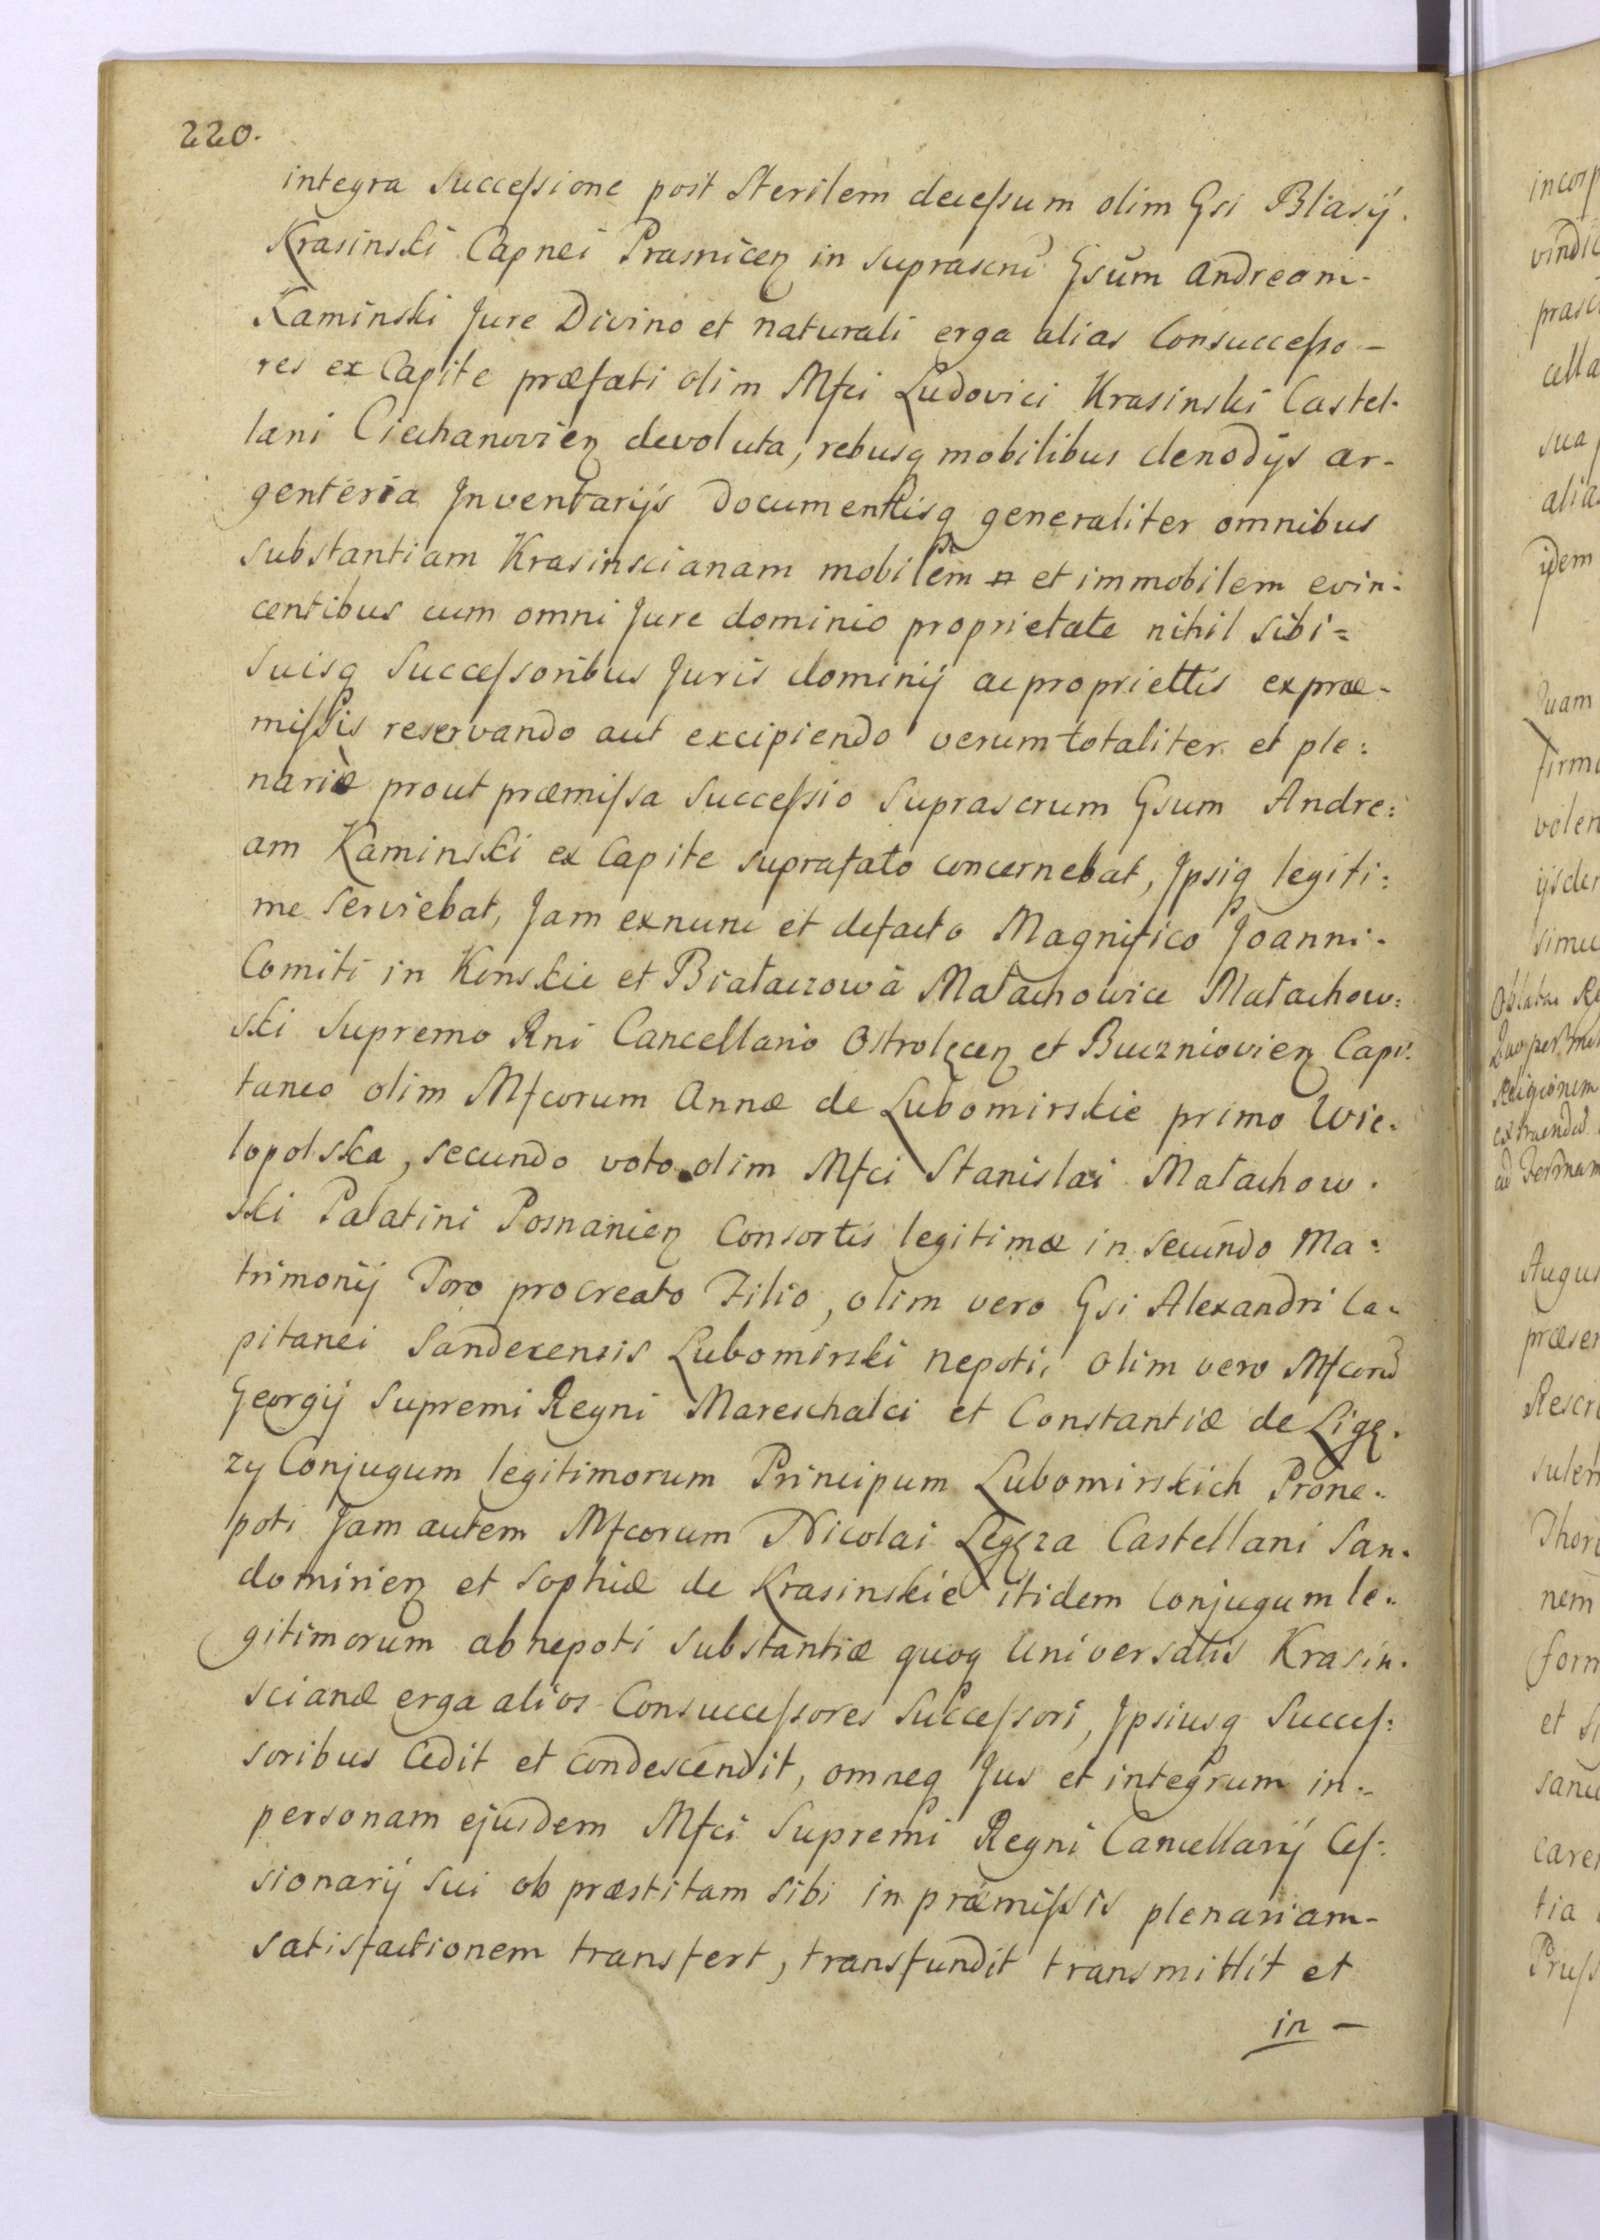 220.
integra Succeſsione post Sterilem deceſsum olim Gsi Blasÿ.
Krasinski Capnei Prasnicen in suprascnū Gsum Andream-
Kaminski Jure Divino et naturali erga alias Consucceſso-
res ex Capite præfati olim Mfci Ludovici Krasinski Castel-
lani Ciechanovien devoluta, rebusq mobilibus clenodÿs ar-
genteria Inventarÿs Documenttisq generaliter omnibus
substantiam Krasinscianam mobilem et immobilem evin:
centibus cum omni Jure dominio proprietate nihil sibi=
Suisq Succeſsoribus Juris dominÿ ac propriettis ex præ-
miſsis reservando aut excipiendo verum totaliter et ple:
nariè prout præmiſsa Succeſsio Suprascrum Gsum Andre:
am Kaminski ex Capite suprafato concernebat, Ipsiq legiti:
me Serviebat, Jam exnunc et defacto Magnifico Joanni-
Comiti in Konskie et Białaczowa Małachowice Małachow:
ski Supremo Rni Cancellario Ostrolęcen et Buczniovien Capi:
taneo olim Mfcorum Annæ de Lubomirskie primo Wie-
lopolska, secundo voto olim Mfci Stanislai Małachow.
ski Palatini Posnanien Consortis legitimæ in secundo Ma:
trimonÿ Toro procreato Filio, olim vero Gsi Alexandri Ca-
pitanei Sandecensis Lubomirski nepoti, olim vero Mfcorū
Georgÿ Supremi Regni Mareschalci et Constantiæ de Ligę.
zy Conjugum legitimorum Principum Lubomirskich Prone-
poti Jam autem Mfcorum Nicolai Legęza Castellani San.
domirien et Sophiæ de Krasinskie itidem Conjugum le-
gitimorum abnepoti Substantiæ quoq Universalis Krasin.
scianæ erga alios Consucceſsores Succeſsori, Ipsiusq Succeſ:
soribus Cedit et condescendit, omneq Jus et integrum in-
personam ejusdem Mfci Supremi Regni Cancellarÿ Ceſ:
sionarÿ Sui ob præstitam Sibi in præmiſsis plenariam-
satisfactionem transfert, transfundit transmittit et
in -